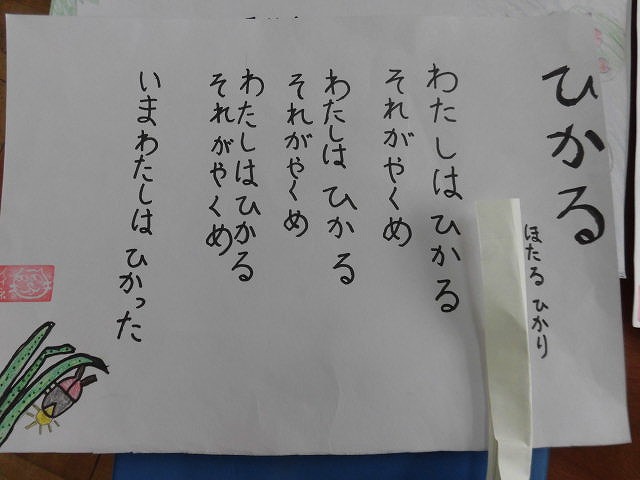 ひかる
ほたる ひかり
わたしは ひかる
それがやくめ
わたしは ひかる
それがやくめ
わたしはひかる
それがやくめ
いまわたしは ひかった